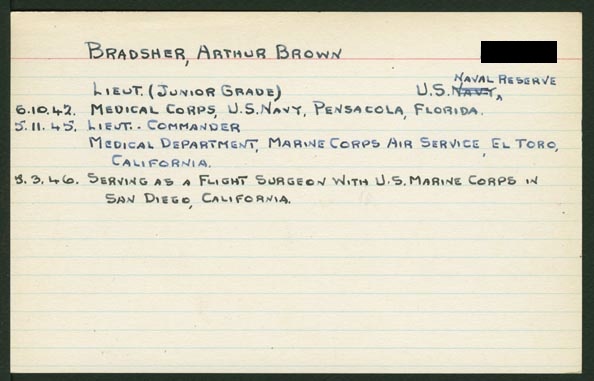 BRADSHER, ARTHUR BROWN
NAVAL RESERVE
LIEUT. (JUNIOR GRADE) U.S. NAVY,
6.10.42. MEDICAL CORPS, U.S. NAVY, PENSACOLA, FLORIDA.
5.11.45. LIEUT.. COMMANDER
MEDICAL DEPARTMENT, MARINE CORPS AIR SERVICE, EL TORO,
CALIFORNIA.
3.3.46. SERVING AS A FLIGHT SURGEON WITH U.S. MARINE CORPS IN
SAN DIEGO, CALIFORNIA.